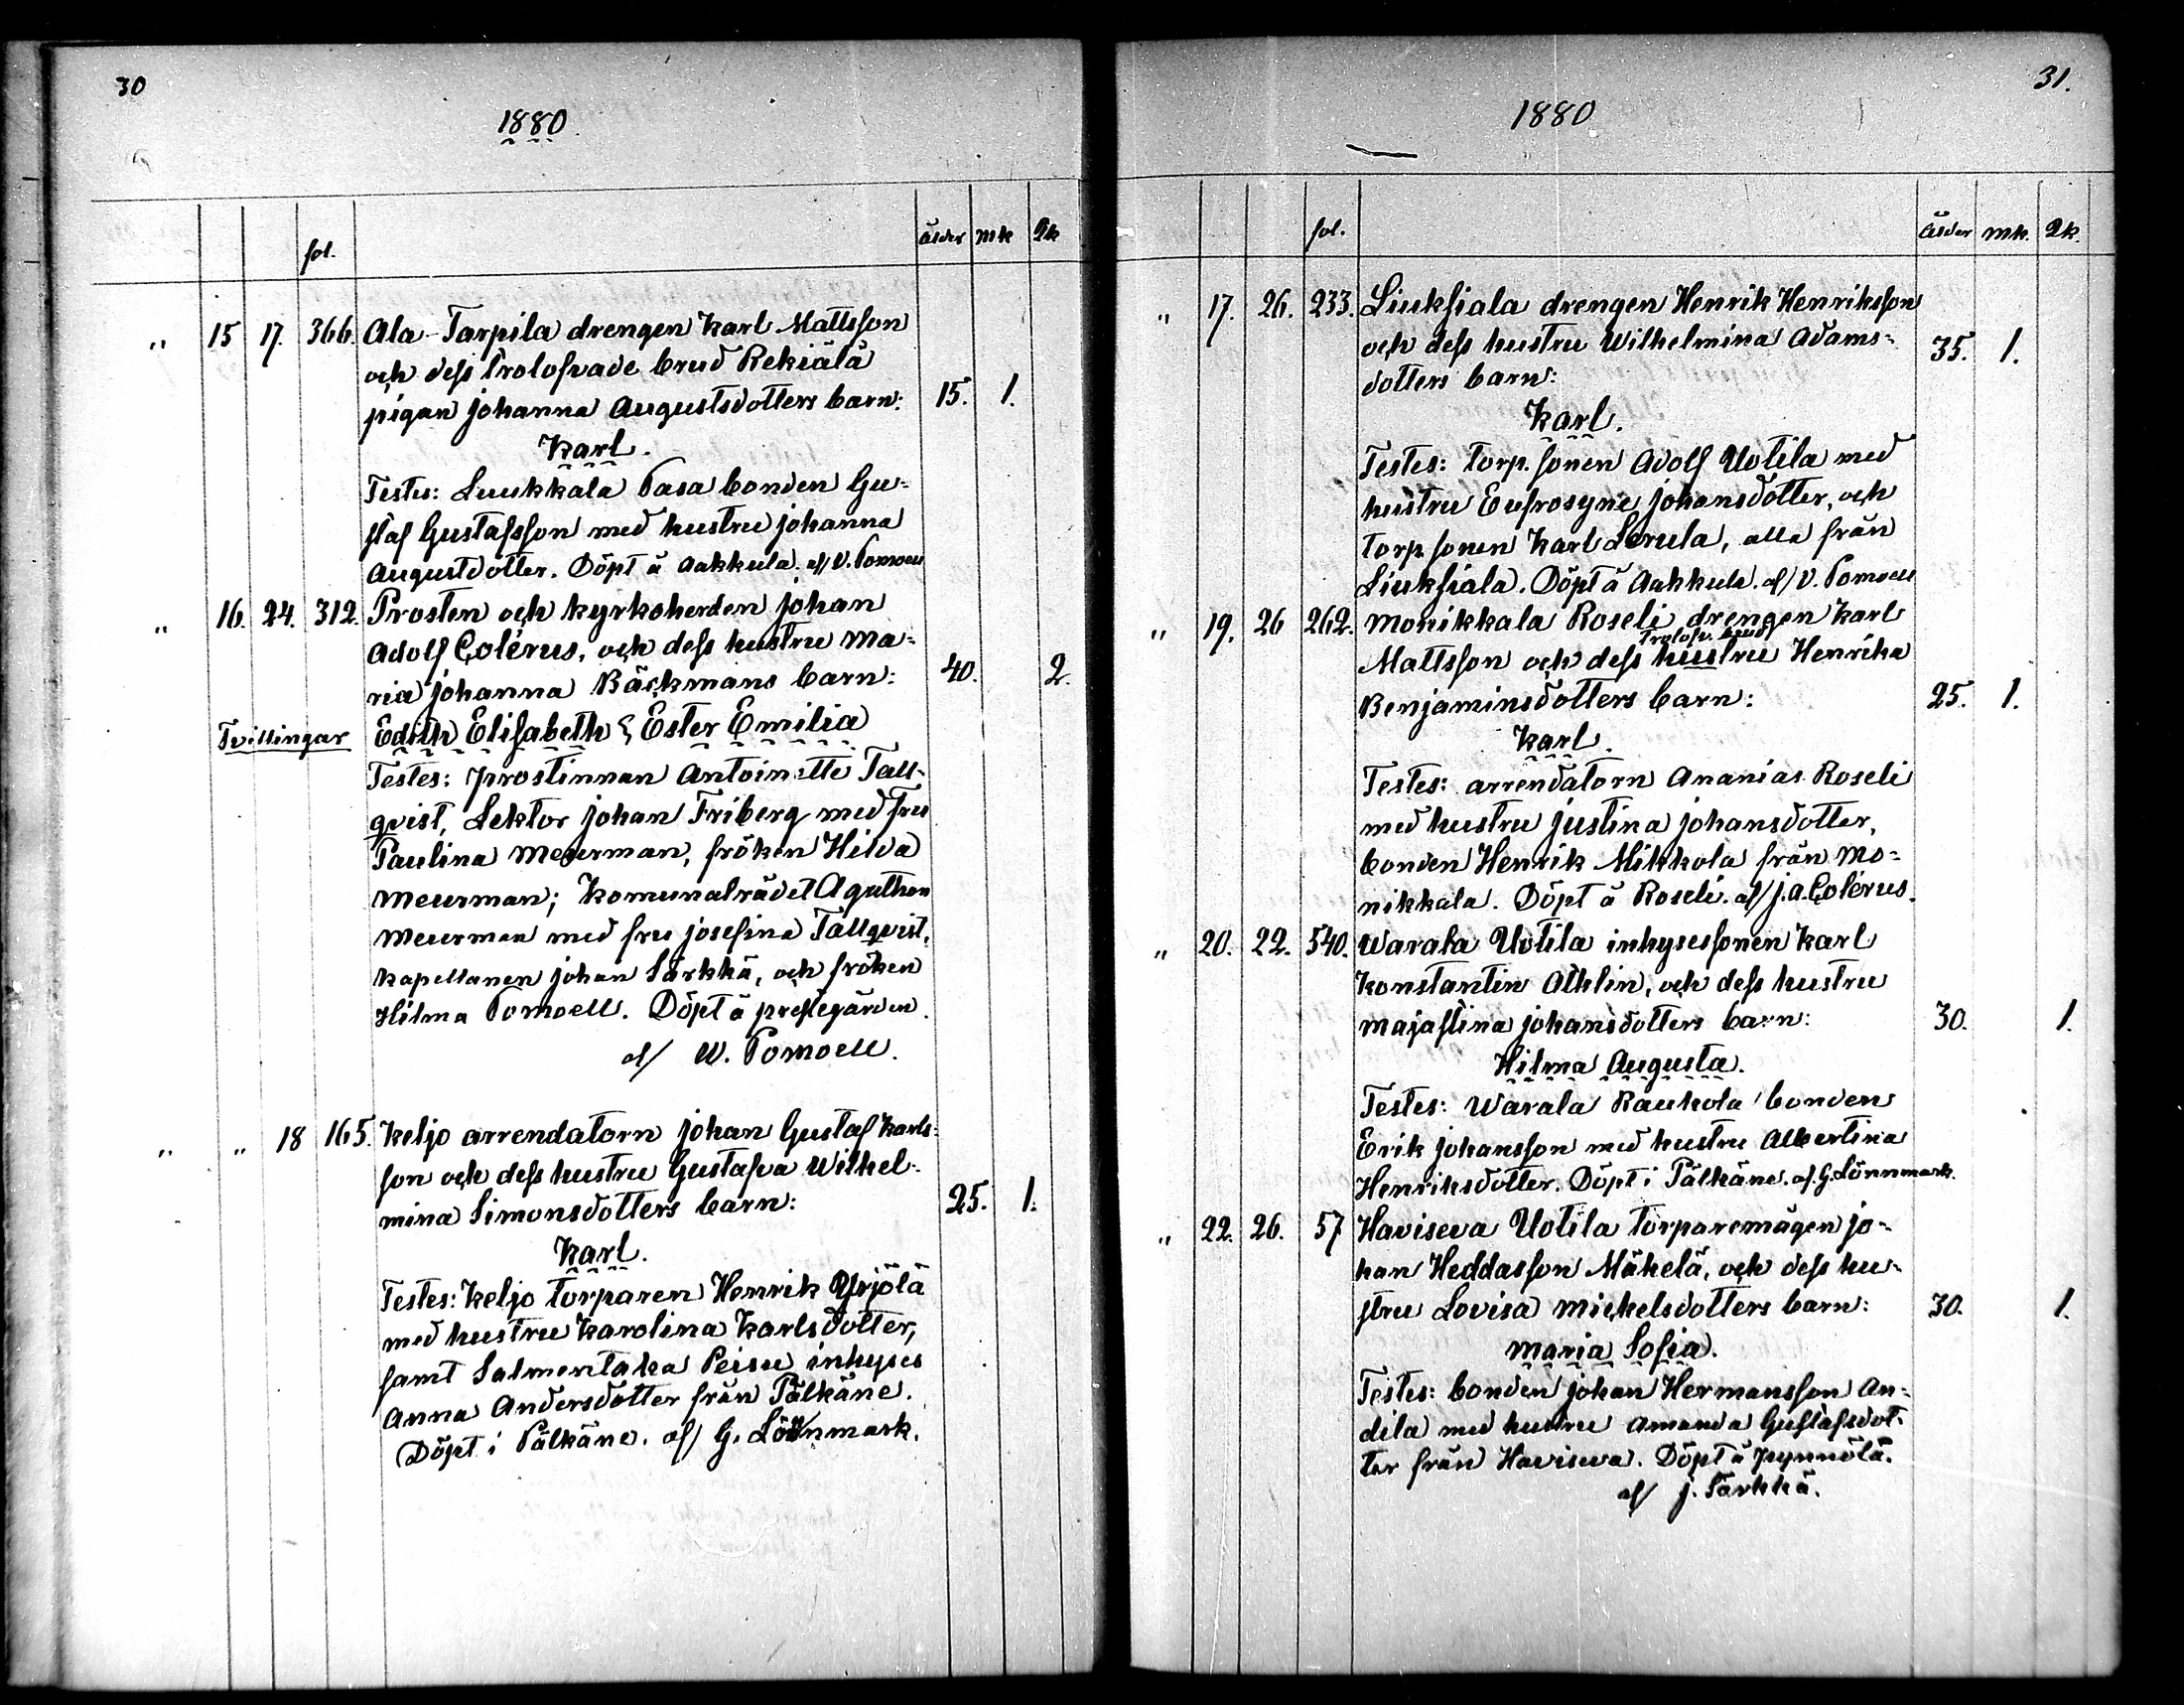 30
1880.
fol. ålder mk Qk
" 15 17. 366. Ala-Tarpila drengen Karl Mattsson
och dess trolofvade brud Rekiälä
pigan Johanna Augustsdotters barn: 15. 1.
Karl.
Testes: Luukkala Pasa bonden Gu-
staf Gustafsson med hustru Johanna
Augustdotter. Döpt å Aakkula. af V. Pomoell
" 16. 24. 312. Prosten och kyrkoherden Johan
Adolf Colérus, och dess hustru Ma-
ria Johanna Bäckmans barn: 40. 2.
Tvillingar Edith Elisabeth & Ester Emilia
Testes: prostinnan Antoinette Tall-
qvist, Lektor Johan Friberg med fru
Paulina Meurman, fröken Hilda
Meurman; Komunalrådet Agathon
Meurman med fru Josefina Tallqvist,
Kapellanen Johan Särkkä, och fröken
Hilma Pomoell. Döpt å prestegården.
af/ W. Pomoell.
" " 18 165. Keljo arrendatorn Johan Gustaf Karls-
son och dess hustru Gustafva Wilhel-
mina Simonsdotters barn: 25. 1.
Karl.
Testes: Keljo torparen Henrik Yrjölä
med hustru Karolina Karlsdotter,
samt Salmentaka Peisu inhyses
Anna Andersdotter från Pälkäne.
Döpt i Pälkäne. af/ G. Lönnmark.
31.
1880
fol. ålder mk. Qk.
" 17. 26. 233. Liuksiala drengen Henrik Henriksson
och dess hustru Wilhelmina Adams- 35. 1.
dotters barn:
Karl.
Testes: torp. sonen Adolf Uotila med
hustru Eufrosyne Johansdotter, och
torp sonen Karl Lerula, alla från
Liuksiala. Döpt å Aakkula. af/ V. Pomoell
" 19. 26 262. Monikkala Roseli drengen Karl
trolofv. brud
Mattsson och dess hustru Henrika
Benjaminsdotters barn: 25. 1.
Karl.
Testes: arrendatorn Ananias Roseli
med hustru Justina Johansdotter,
bonden Henrik Mikkola från Mo-
nikkala. Döpt å Roseli. af/ J. A. Colérus.
" 20. 22. 540. Warala Uotila inhysessonen Karl
Konstantin Athlin, och dess hustru
Majastina Johansdotters barn: 30. 1.
Hilma Augusta.
Testes: Warala Raukola bonden
Erik Johansson med hustru Albertina
Henriksdotter. Döpt i Pälkäne. af. G. Lönnmark.
" 22. 26. 57 Haviseva Uotila torparemågen Jo-
han Heddasson Mäkelä, och dess hu-
stru Lovisa Mickelsdotters barn: 30. 1.
Maria Sofia.
Testes: bonden Johan Hermansson An-
dila med hustru Amanda Gustafsdot-
ter från Haviseva. Döpt å Pynnölä.
af/ J. Särkkä.